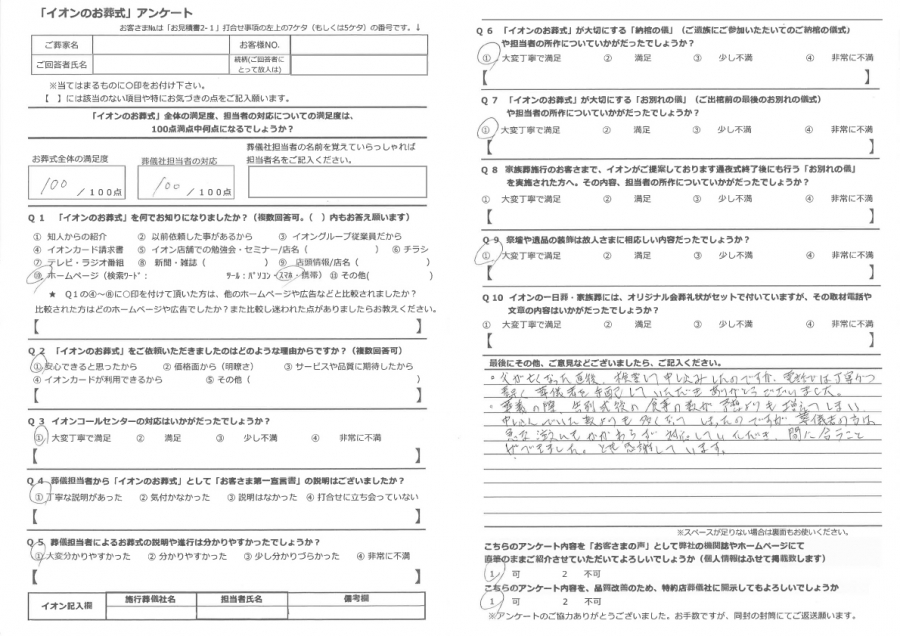 「イオンのお葬式」アンケート
お客さま№は「お見積書2-1」打合せ事項の左上の7ケタ（もしくは5ケタ）の番号です。↓
ご葬家名 お客様NO.
ご回答者氏名 続柄(ご回答者に
とって故人は)
※当てはまるものに○印をお付け下さい。
【　】には該当のない項目や特にお気づきの点をご記入願います。
「イオンのお葬式」全体の満足度、担当者の対応についての満足度は、
100点満点中何点になるでしょうか？
葬儀社担当者の名前を覚えていらっしゃれば
お葬式全体の満足度 葬儀社担当者の対応 担当者名をご記入ください。
100 / 100点 100 / 100点
Q 1　「イオンのお葬式」を何でお知りになりましたか？（複数回答可。（　）内もお答え願います）
① 知人からの紹介 ② 以前依頼した事があるから ③ イオングループ従業員だから
④ イオンカード請求書 ⑤ イオン店舗での勉強会・セミナー/店名（　） ⑥ チラシ
⑦ テレビ・ラジオ番組 ⑧ 新聞・雑誌（　） ⑨ 店頭情報/店名（　）
⑩ ホームページ（検索ﾜｰﾄﾞ：　ﾂｰﾙ：ﾊﾟｿｺﾝ・ｽﾏﾎ・携帯） ⑪ その他(　)
★　Q1の④～⑥に○印を付けて頂いた方は、他のホームページや広告などと比較されましたか？
比較された方はどのホームページや広告でしたか？また比較し迷われた点がありましたらお教えください。
【　】
Q 2　「イオンのお葬式」をご依頼いただきましたのはどのような理由からですか？（複数回答可）
① 安心できると思ったから ② 価格面から（明瞭さ） ③ サービスや品質に期待したから
④ イオンカードが利用できるから ⑤ その他（　）
【　】
Q 3　イオンコールセンターの対応はいかがだったでしょうか？
① 大変丁寧で満足 ② 満足 ③ 少し不満 ④ 非常に不満
【　】
Q 4　葬儀担当者から「イオンのお葬式」として「お客さま第一宣言書」の説明はございましたか？
① 丁寧な説明があった ② 気付かなかった ③ 説明はなかった ④ 打合せに立ち会っていない
【　】
Q 5　葬儀担当者によるお葬式の説明や進行は分かりやすかったでしょうか？
① 大変分かりやすかった ② 分かりやすかった ③ 少し分かりづらかった ④ 非常に不満
【　】
イオン記入欄 施行葬儀社名 担当者氏名 備考欄
Q 6　「イオンのお葬式」が大切にする「納棺の儀」（ご遺族にご参加いただたいてのご納棺の儀式）
や担当者の所作についていかがだったでしょうか？
① 大変丁寧で満足 ② 満足 ③ 少し不満 ④ 非常に不満
【　】
Q 7　「イオンのお葬式」が大切にする「お別れの儀」（ご出棺前の最後のお別れの儀式）
や担当者の所作についていかがだったでしょうか？
① 大変丁寧で満足 ② 満足 ③ 少し不満 ④ 非常に不満
【　】
Q 8　家族葬施行のお客さまで、イオンがご提案しております通夜式終了後にも行う「お別れの儀」
を実施された方へ。その内容、担当者の所作についていかがだったでしょうか？
① 大変丁寧で満足 ② 満足 ③ 少し不満 ④ 非常に不満
【　】
Q 9　祭壇や遺品の装飾は故人さまに相応しい内容だったでしょうか？
① 大変丁寧で満足 ② 満足 ③ 少し不満 ④ 非常に不満
【　】
Q 10　イオンの一日葬・家族葬には、オリジナル会葬礼状がセットで付いていますが、その取材電話や
文章の内容はいかがだったでしょうか？
① 大変丁寧で満足 ② 満足 ③ 少し不満 ④ 非常に不満
【　】
最後にその他、ご意見などございましたら、ご記入ください。
・父が亡くなった直後、検索して申し込みしたのですが、電話では丁寧かつ
葬儀者を手配していただきありがとうございました。
・葬儀の際、告別式後の食事の数が予想よりも増えてしまい
申し込んでいた数よりも多くなってしまったのですが、葬儀者の方は
急な注文にもかかわらず対応していただき、間に合うこと
ができました。とても感謝しています。
※スペースが足りない場合は裏面もお使いください。
こちらのアンケート内容を「お客さまの声」として弊社の機関誌やホームページにて
直筆のままご紹介させていただいてよろしいでしょうか（個人情報はふせて掲載致します）
1　可 2　不可
こちらのアンケート内容を、品質改善のため、特約店葬儀社に開示してもよろしいでしょうか
1　可 2　不可
※アンケートのご協力ありがとうございました。お手数ですが、同封の封筒にてご返送願います。